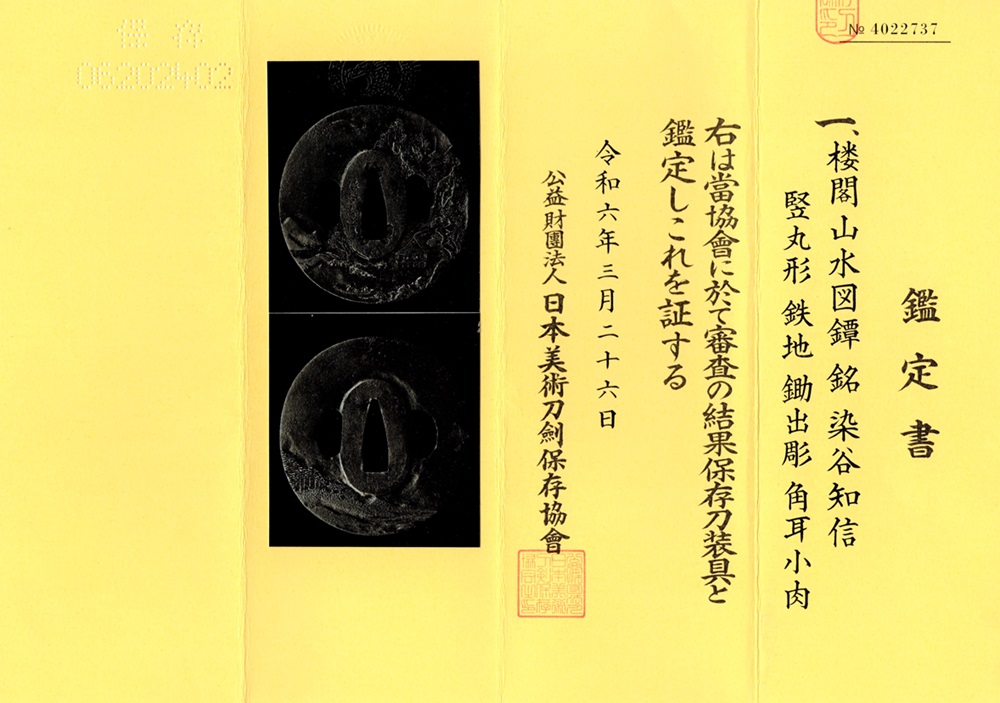 № 4022737
鑑定書
一、楼閣山水図鐔 銘 染谷知信
竪丸形 鉄地 鋤出彫 角耳小肉
右は當協會に於て審査の結果保存刀装具と
鑑定しこれを証する
令和六年三月二十六日
公益財團法人 日本美術刀劍保存協會
保存
06202402